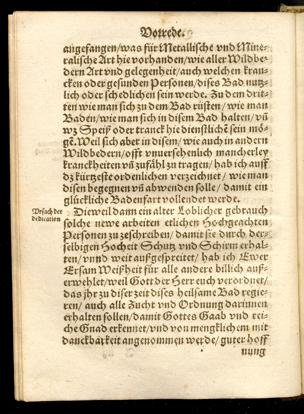 Vorrede.
angefangen/was für Metallische vnd Mine-
ralische Art hie vorhanden/wie aller Wildbe-
dern Art vnd gelegenheit/auch welchen kran-
cken oder gesunden Personen/dises Bad nutz-
lich oder schedlichen sein werde. Zu dem drit-
ten wie man sich zu dem Bad rüsten/wie man
Baden/wie man sich in disem Bad halten/vñ
wz Speiß oder tranck hie dienstlich̃ sein mö-
ge. Weil sich aber in disen/wie auch in andern
Wildbedern/offt vnuersehenlich mancherley
Kranckheiten vñ zufäl zu tragen/hab ich auff
dz kürtzeste ordenlichen verzeichnet/wie man
disen begegnen vñ abwenden solle/damit ein
glückliche Badenfart vollendet werde.
Vrsach der
dedication
Dieweil dann ein alter Loblicher gebrauch
solche newe arbeiten etlichen Hochgeachten
Personen zu zeschreiben/damit sie durch der-
selbigen Hocheit Schutz vnd Schirm erhal-
ten/vnnd weit außgespreitet/hab ich Ewer
Ersam Weißheit für alle andere billich auß-
erwehlet/weil Gott der Herr euch verordnet/
das jhr zu diser zeit dises heilsame Bad regie-
ren/auch alle Zucht vnd Ordnung darinnen
erhalten sollen/damit Gottes Gaab vnd rei-
che Gnad erkennet/vnd von mengklichem mit
danckbarkeit angenommen werde/guter hoff
nung